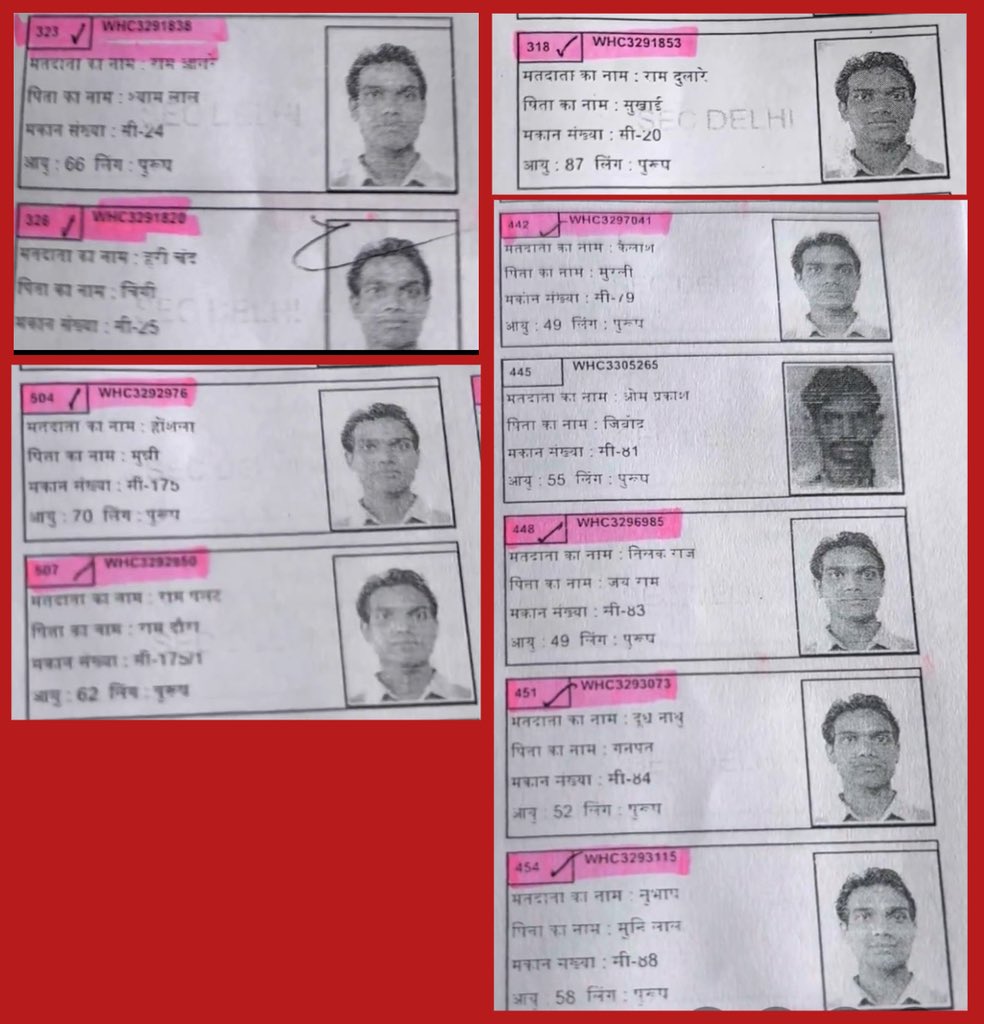 323 WHC3291838
मतदाता का नाम : राम
पिता का नाम : श्याम लाल
मकान संख्या : सी-24
आयु : 66 लिंग : पुरुष
SEC DELHI
326 WHC3291820
मतदाता का नाम : हरी चंद
पिता का नाम :
मकान संख्या : सी-25
504 WHC3292976
मतदाता का नाम :
पिता का नाम : मुन्नी
मकान संख्या : सी-175
आयु : 70 लिंग : पुरुष
507 WHC3292950
मतदाता का नाम : राम
पिता का नाम : राम
मकान संख्या : सी-175/1
आयु : 62 लिंग : पुरुष
318 WHC3291853
मतदाता का नाम : राम दुलारे
पिता का नाम : सुखाई
मकान संख्या : सी-20
आयु : 87 लिंग : पुरुष
SEC DELHI
442 WHC3297041
मतदाता का नाम : कैलाश
पिता का नाम : मुरली
मकान संख्या : सी-79
आयु : 49 लिंग : पुरुष
445 WHC3305265
मतदाता का नाम : ओम प्रकाश
पिता का नाम :
मकान संख्या : सी-81
आयु : 55 लिंग : पुरुष
448 WHC3296985
मतदाता का नाम : तिलक राज
पिता का नाम : जय राम
मकान संख्या : सी-83
आयु : 49 लिंग : पुरुष
451 WHC3293073
मतदाता का नाम : दूध नाथ
पिता का नाम : गनपत
मकान संख्या : सी-84
आयु : 52 लिंग : पुरुष
454 WHC3293115
मतदाता का नाम : सुभाष
पिता का नाम : मुनि लाल
मकान संख्या : सी-88
आयु : 58 लिंग : पुरुष